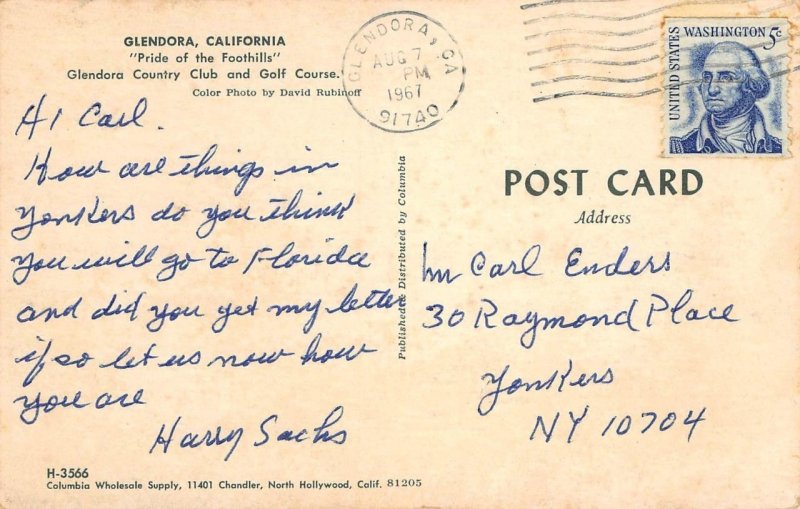 GLENDORA, CALIFORNIA
"Pride of the Foothills"
Glendora Country Club and Golf Course.
Color Photo by David Rubinoff
GLENDORA, CA
AUG 7
PM
1967
91740
UNITED STATES
WASHINGTON 5c
Hi Carl.
How are things in
Yonkers do you think
you will go to Florida
and did you get my letter
if so let us now how
you are
Harry Sachs
Published & Distributed by Columbia
POST CARD
Address
Mr Carl Enders
30 Raymond Place
Yonkers
NY 10704
H-3566
Columbia Wholesale Supply, 11401 Chandler, North Hollywood, Calif. 81205